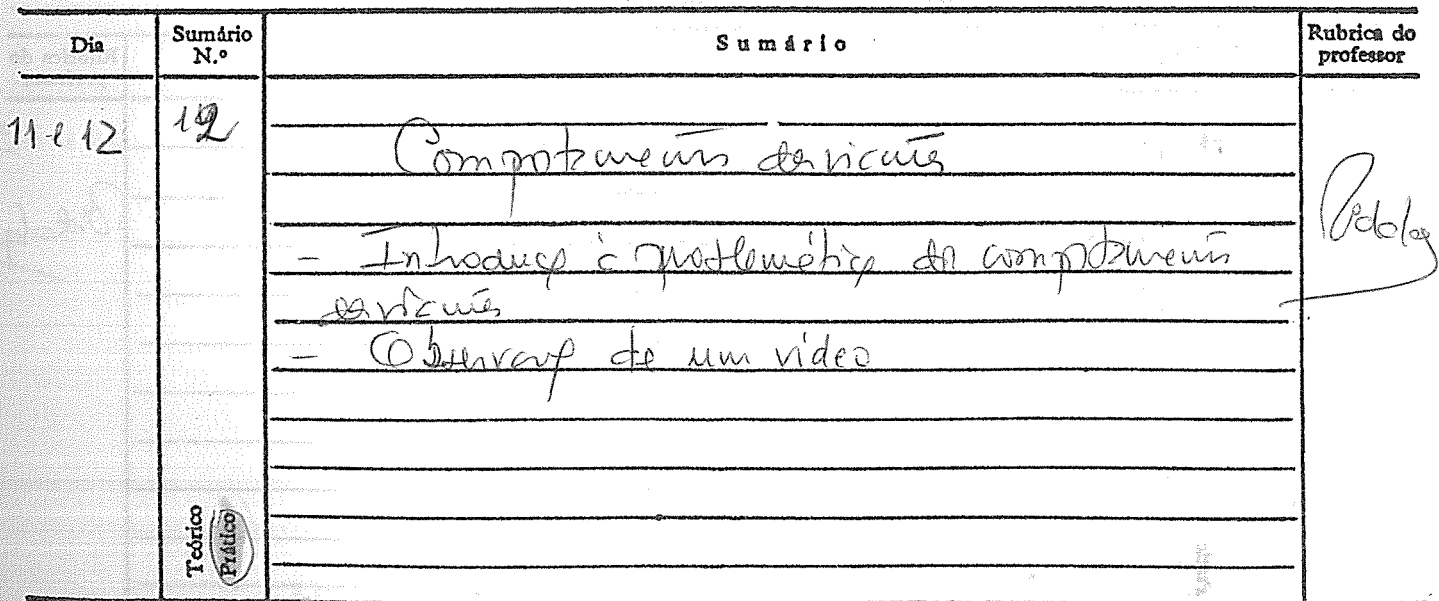 Dia
Sumário N.º
Sumário
Rubrica do professor
11 e 12
12
Comportamentos desviantes
- Introdução à problemática do comportamento
desviante
- Observação de um vídeo
Teórico
Prático